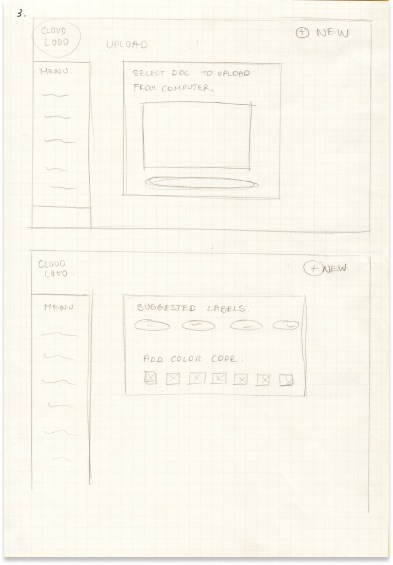 3.
CLOUD
LOGO
+ NEW
UPLOAD
MENU
SELECT DOC TO UPLOAD
FROM COMPUTER.
CLOUD
LOGO
+ NEW
MENU
SUGGESTED LABELS.
ADD COLOR CODE.